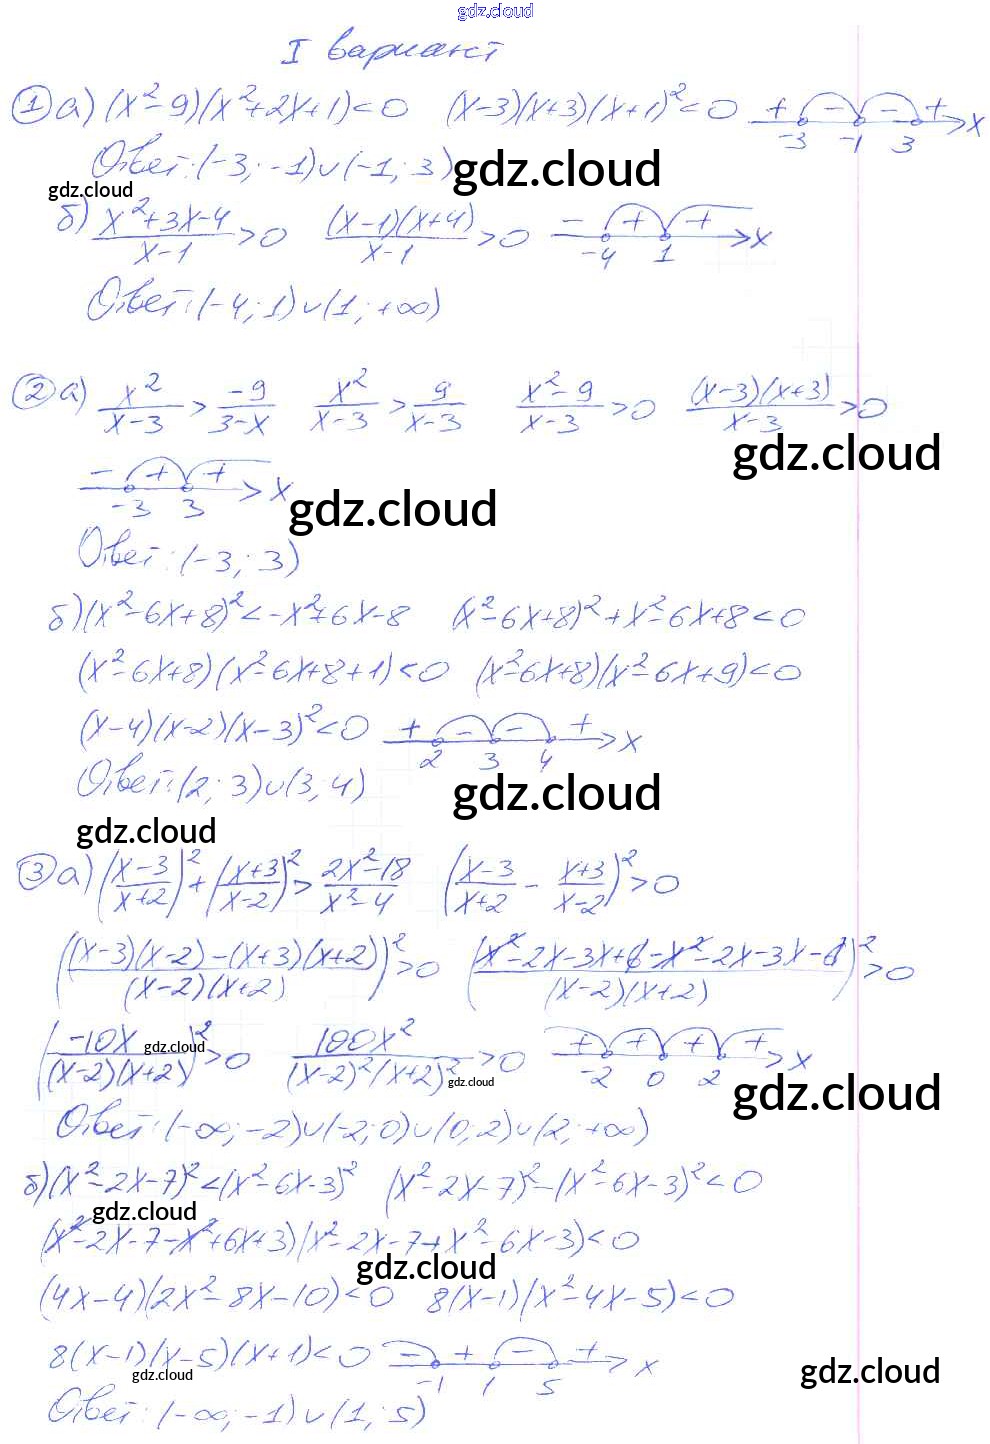 gdz.cloud
I вариант
① а) (x²-9)(x²+2x+1)<0 (x-3)(x+3)(x+1)²<0 + - - + -3 -1 3 x
Ответ: (-3; -1)∪(-1; 3) gdz.cloud
gdz.cloud
б) (x²+3x-4)/(x-1)>0 ((x-1)(x+4))/(x-1)>0 - + + -4 1 x
Ответ: (-4; 1)∪(1; +∞)
② а) x²/(x-3) > -9/(3-x) x²/(x-3) > 9/(x-3) (x²-9)/(x-3)>0 ((x-3)(x+3))/(x-3)>0
gdz.cloud
- + + -3 3 x gdz.cloud
Ответ: (-3; 3)
б) (x²-6x+8)²<-x²+6x-8 (x²-6x+8)²+x²-6x+8<0
(x²-6x+8)(x²-6x+8+1)<0 (x²-6x+8)(x²-6x+9)<0
(x-4)(x-2)(x-3)²<0 + - - + 2 3 4 x
Ответ: (2; 3)∪(3; 4) gdz.cloud
gdz.cloud
③ а) ((x-3)/(x+2))²+((x+3)/(x-2))²>(2x²-18)/(x²-4) ((x-3)/(x+2) - (x+3)/(x-2))²>0
(((x-3)(x-2)-(x+3)(x+2))/((x-2)(x+2)))²>0 ((x²-2x-3x+6-x²-2x-3x-6)/((x-2)(x+2)))²>0
(-10x/((x-2)(x+2)))²>0 100x²/((x-2)²(x+2)²)>0 + + + + -2 0 2 x
gdz.cloud gdz.cloud gdz.cloud
Ответ: (-∞; -2)∪(-2; 0)∪(0; 2)∪(2; +∞)
б) (x²-2x-7)²<(x²-6x-3)² (x²-2x-7)²-(x²-6x-3)²<0
gdz.cloud
(x²-2x-7-x²+6x+3)(x²-2x-7+x²-6x-3)<0
gdz.cloud
(4x-4)(2x²-8x-10)<0 8(x-1)(x²-4x-5)<0
8(x-1)(x-5)(x+1)<0 - + - + -1 1 5 x
gdz.cloud gdz.cloud
Ответ: (-∞; -1)∪(1; 5)